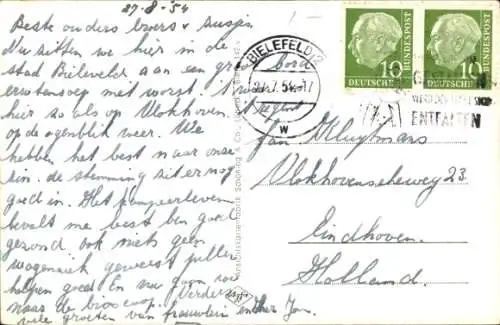 27-8-54
Beste ouders broers +
Nu zitten we hier in de
stad Bieleveld aan een groot bord
erwtensoep met worst. 't
hier zo als op Vlokhoven. 't regent
op de ogenblik weer. We
hebben het best naar onze
zin. de stemming zit er nog
goed in. Het kampeerleven
bevalt me best ben goed
gezond ook niets geen
wagenziek geweest jullie
helpen goed En nu gaan we
naar de bioscoop. Verder
vele groeten van Jan.
BIELEFELD 2
.7.54.-17
w
10
DEUTSCHE
BUNDESPOST
10
DEUTSCHE
BUNDESPOST
ENTFALTEN
Jan Kluytmans
Vlokhovenseweg 23
Eindhoven.
Holland.